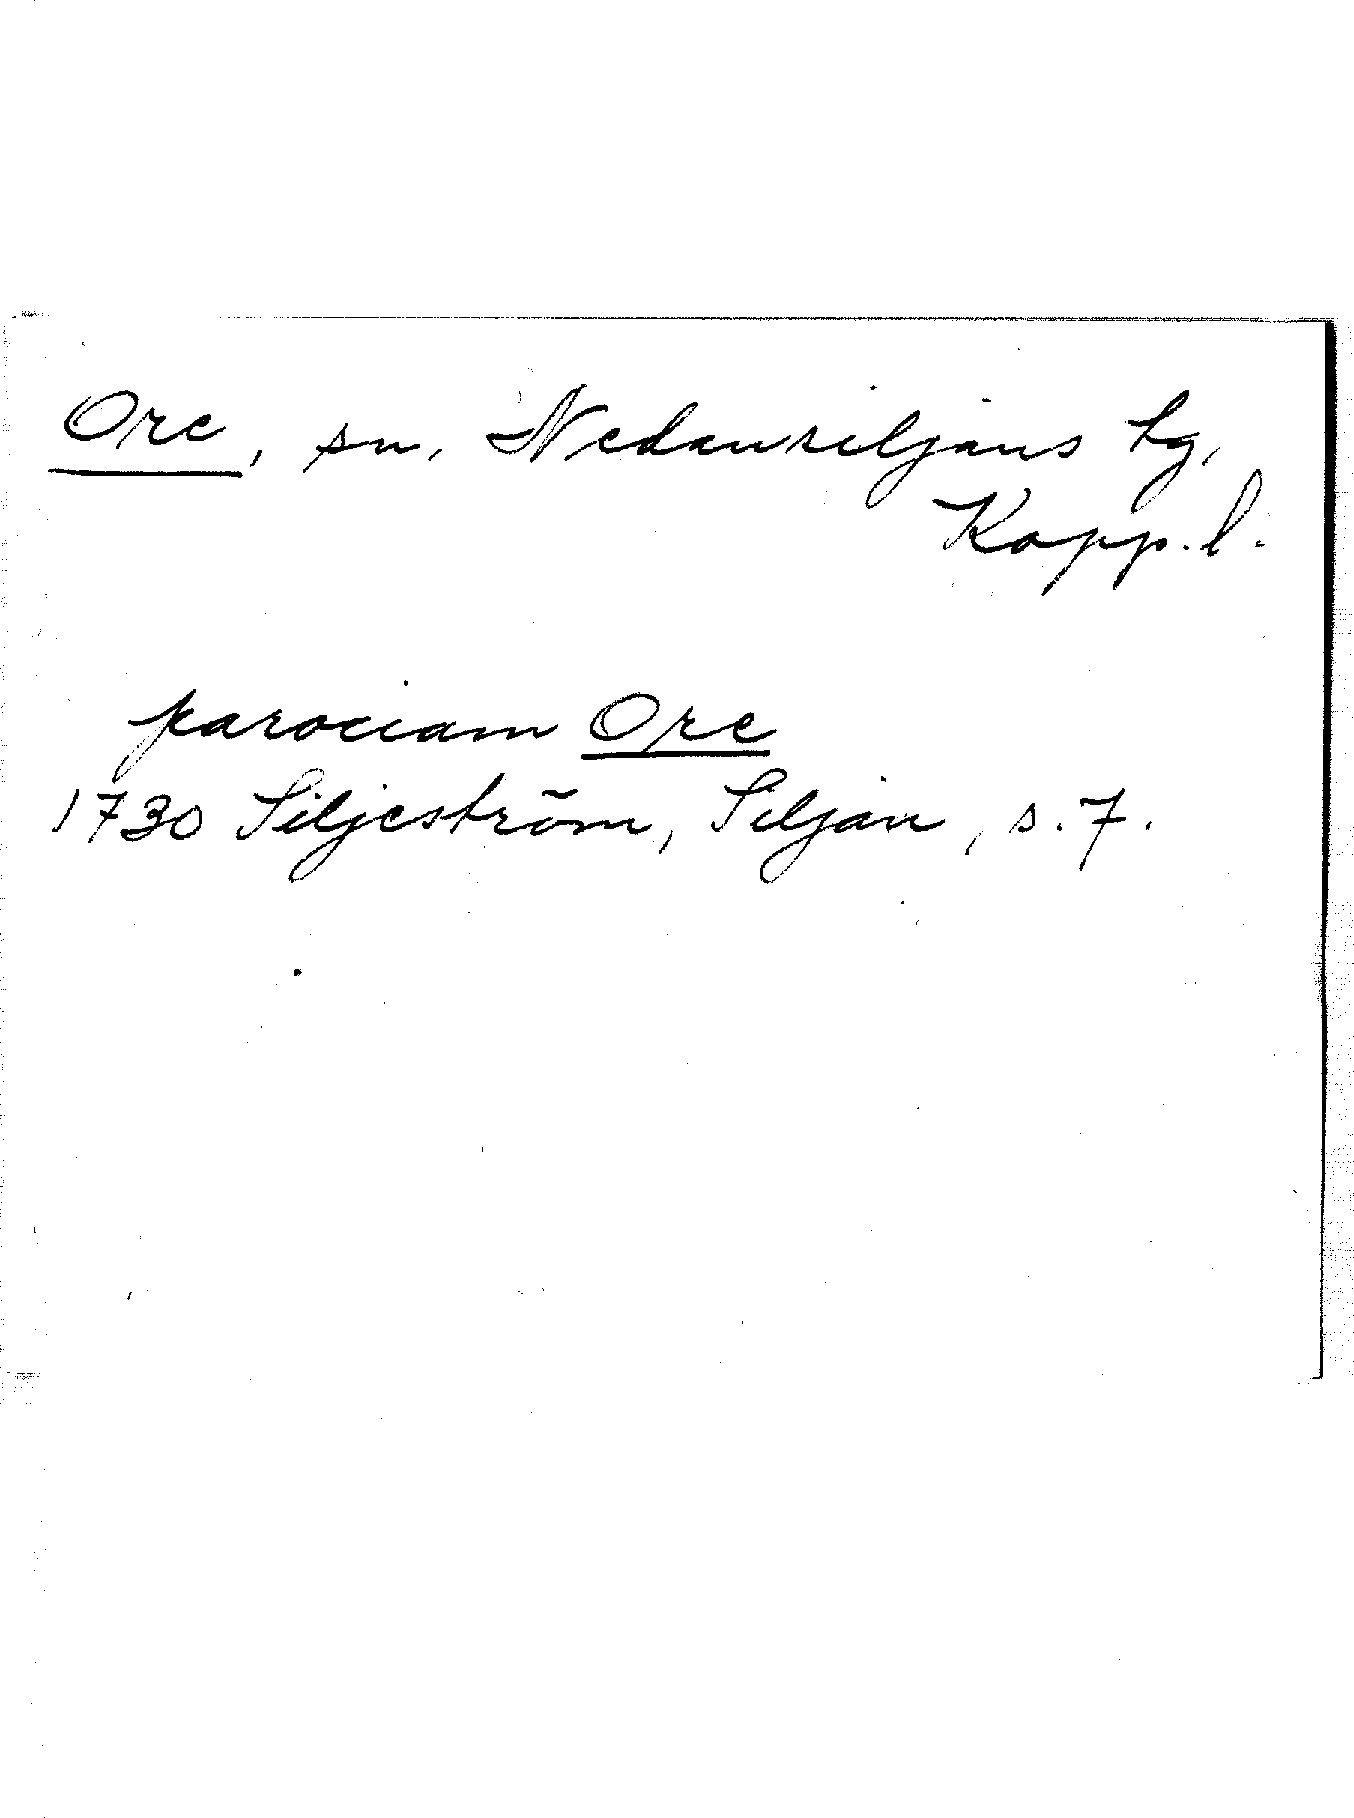 Ore, sn, Nedansiljans tg,
Kopp. l.
parociam Ore
1730 Siljeström, Siljan, s. 7.